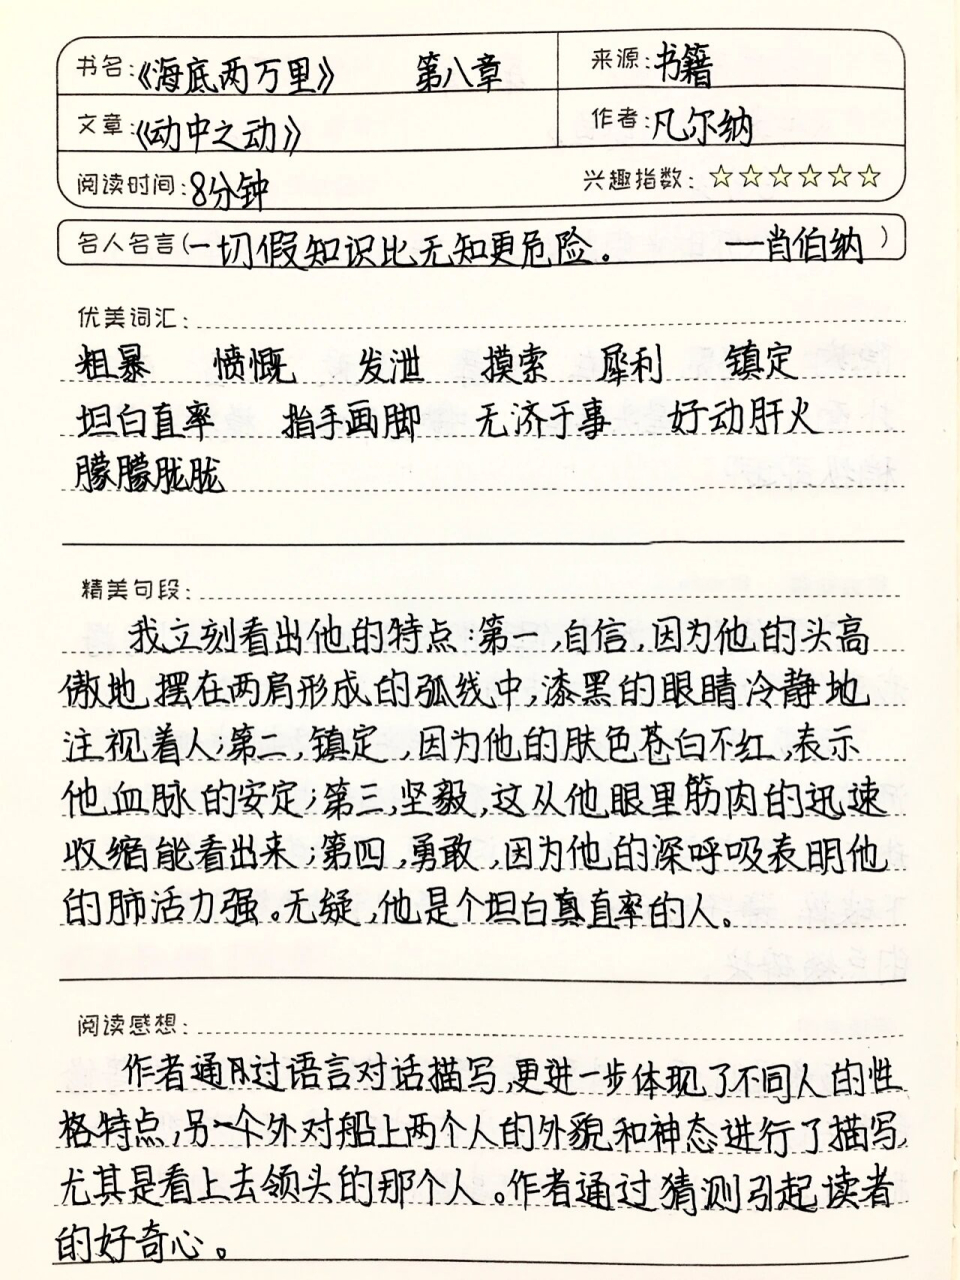 书名:《海底两万里》 第八章 来源:书籍
文章:《动中之动》 作者:凡尔纳
阅读时间:8分钟 兴趣指数:☆☆☆☆☆☆
名人名言(一切假知识比无知更危险。——肖伯纳)
优美词汇:
粗暴 愤慨 发泄 摸索 犀利 镇定
坦白直率 指手画脚 无济于事 好动肝火
朦朦胧胧
精美句段:
我立刻看出他的特点:第一,自信,因为他的头高
傲地摆在两肩形成的弧线中,漆黑的眼睛冷静地
注视着人;第二,镇定,因为他的肤色苍白不红,表示
他血脉的安定;第三,坚毅,这从他眼里筋肉的迅速
收缩能看出来;第四,勇敢,因为他的深呼吸表明他
的肺活力强。无疑,他是个坦白真直率的人。
阅读感想:
作者通过语言对话描写,更进一步体现了不同人的性
格特点,另一个外对船上两个人的外貌和神态进行了描写,
尤其是看上去领头的那个人。作者通过猜测引起读者
的好奇心。